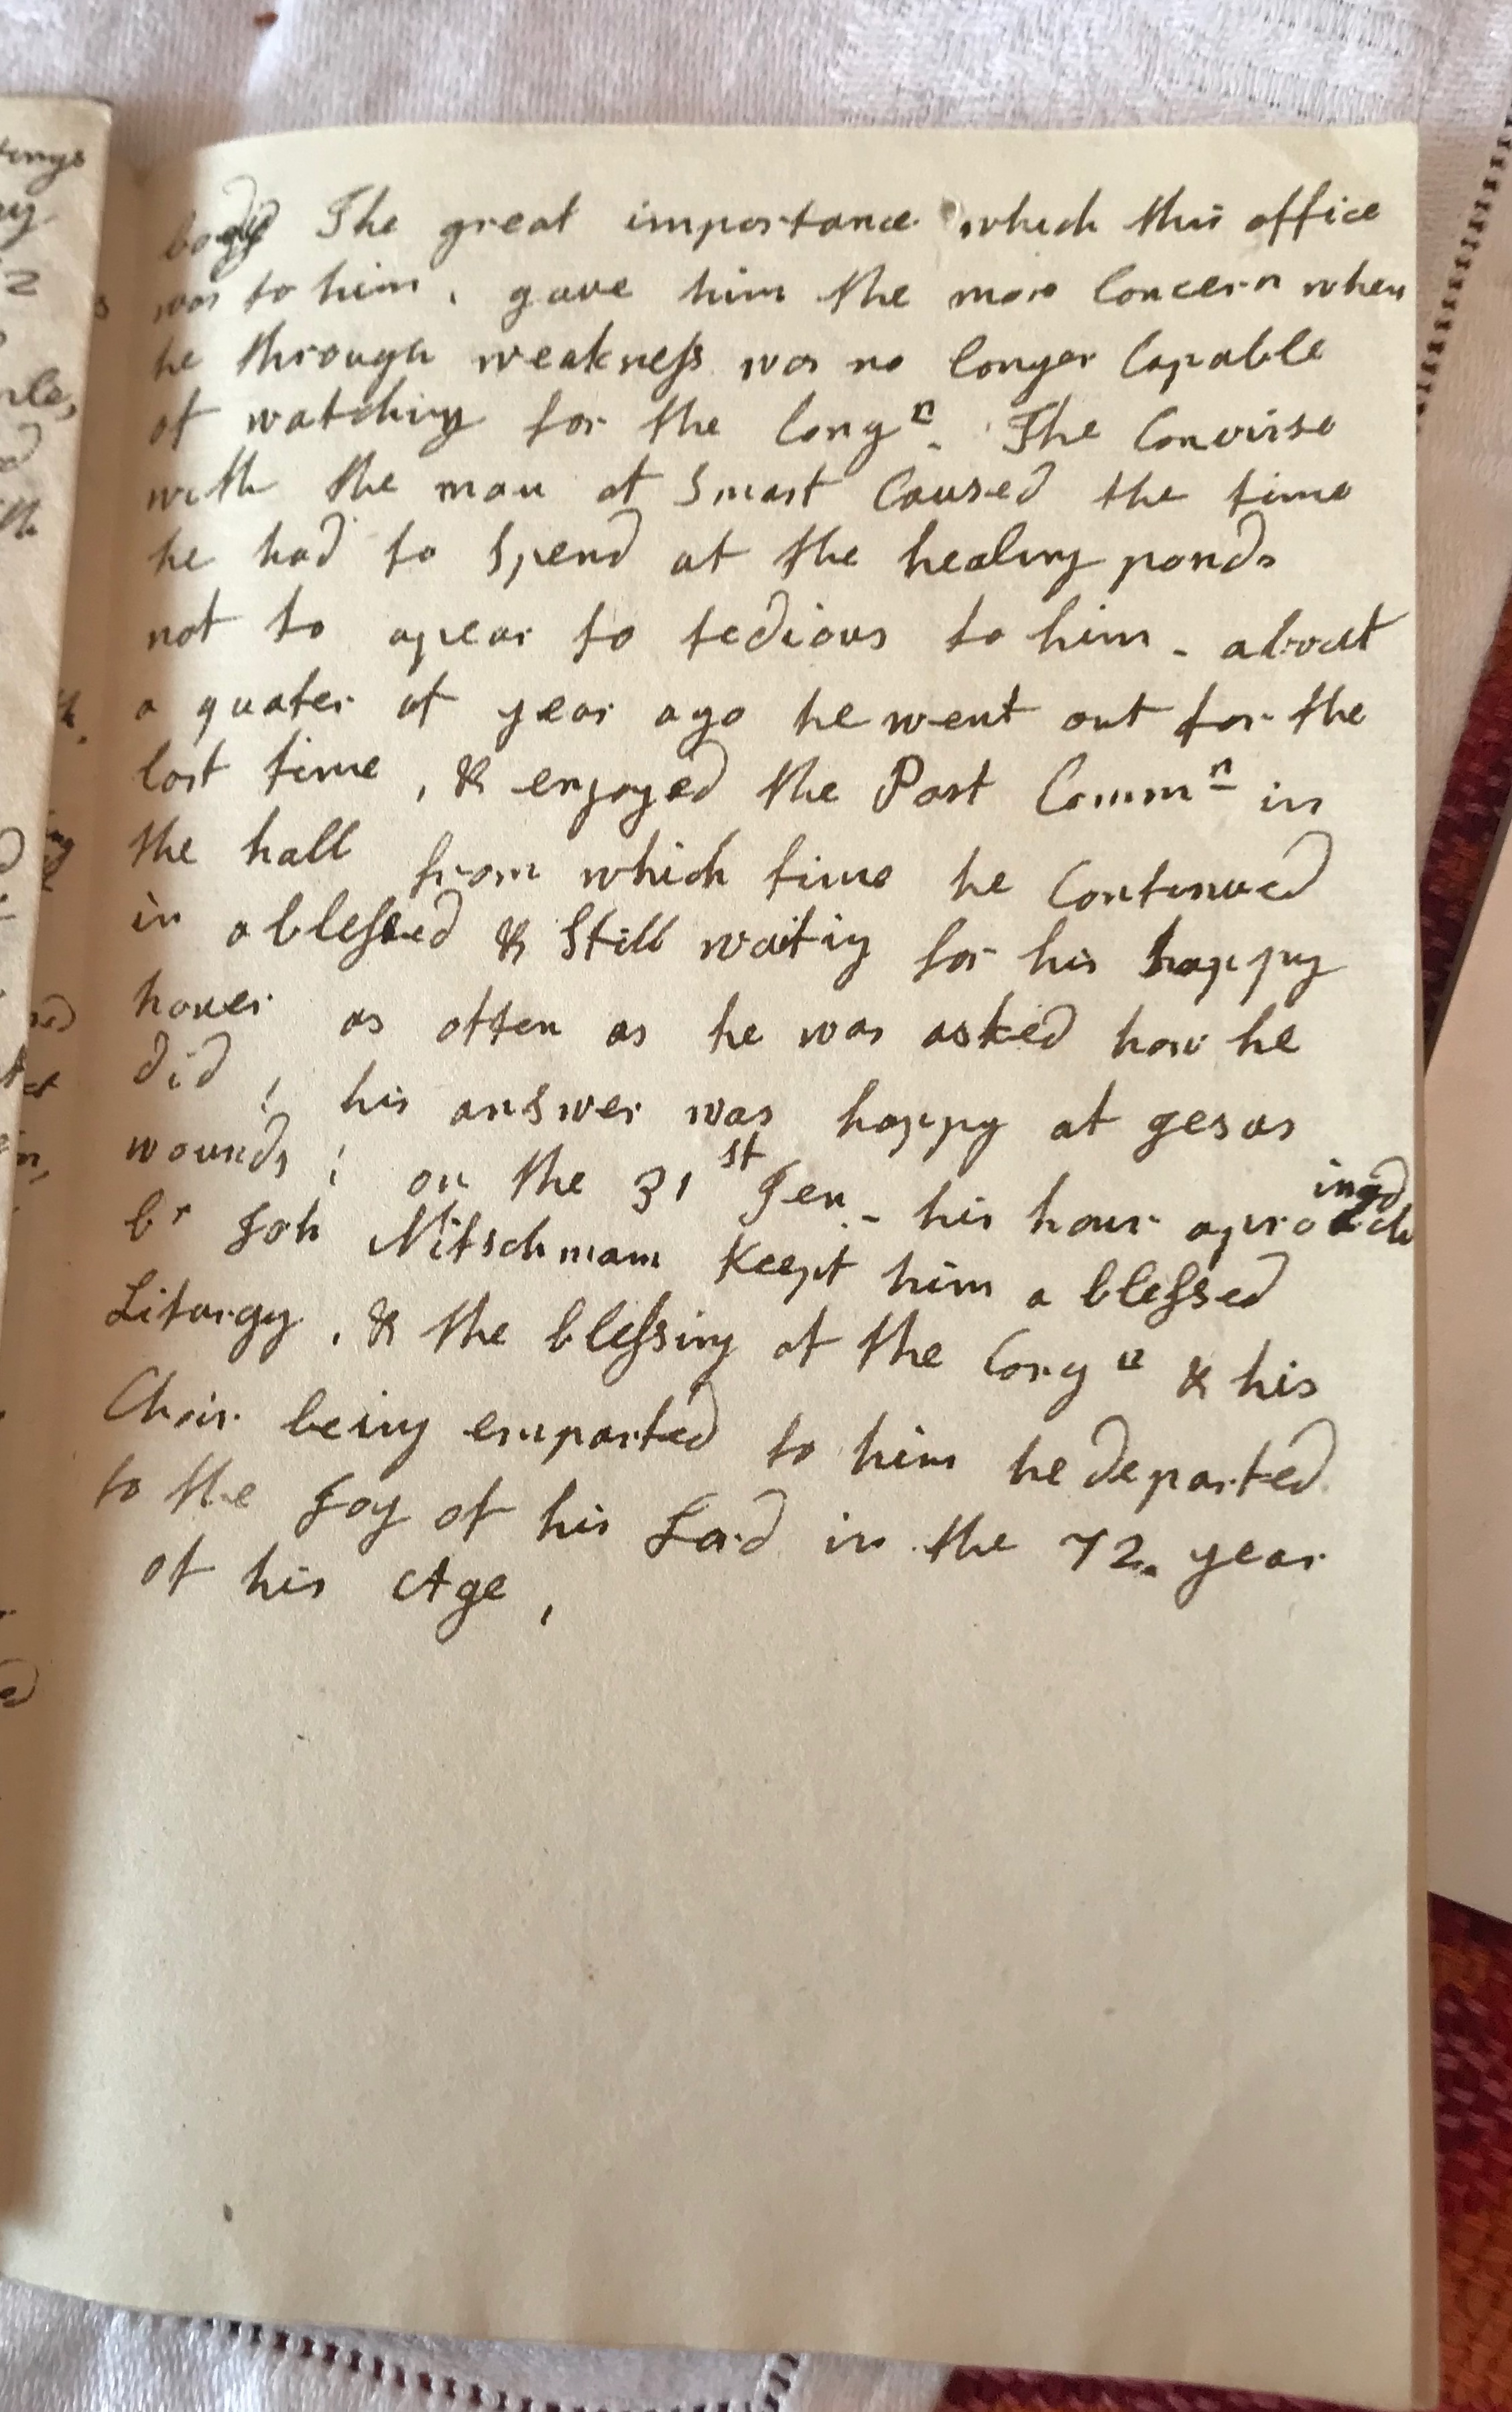 body The great importance which this office
was to him, gave him the more Concern when
he through weakness was no longer Capable
of watching for the Congⁿ. The Converse
with the man of Smart Caused the time
he had to Spend at the healing ponds
not to apear to tedious to him - about
a quater of year ago he went out for the
last time, & enjoyed the Post Commⁿ in
the hall from which time he Continued
in a blessed & Still waitig for his happy
houer as often as he was asked how he
did, his answer was happy at Jesus
wounds; on the 31st Jen. - his hour aproach
br Joh Nitschmam Keept him a blessed
Liturgy, & the blessing of the Congⁿ & his
Choir being emparted to him he departed
to the Joy of his Lord in the 72. year
of his Age,